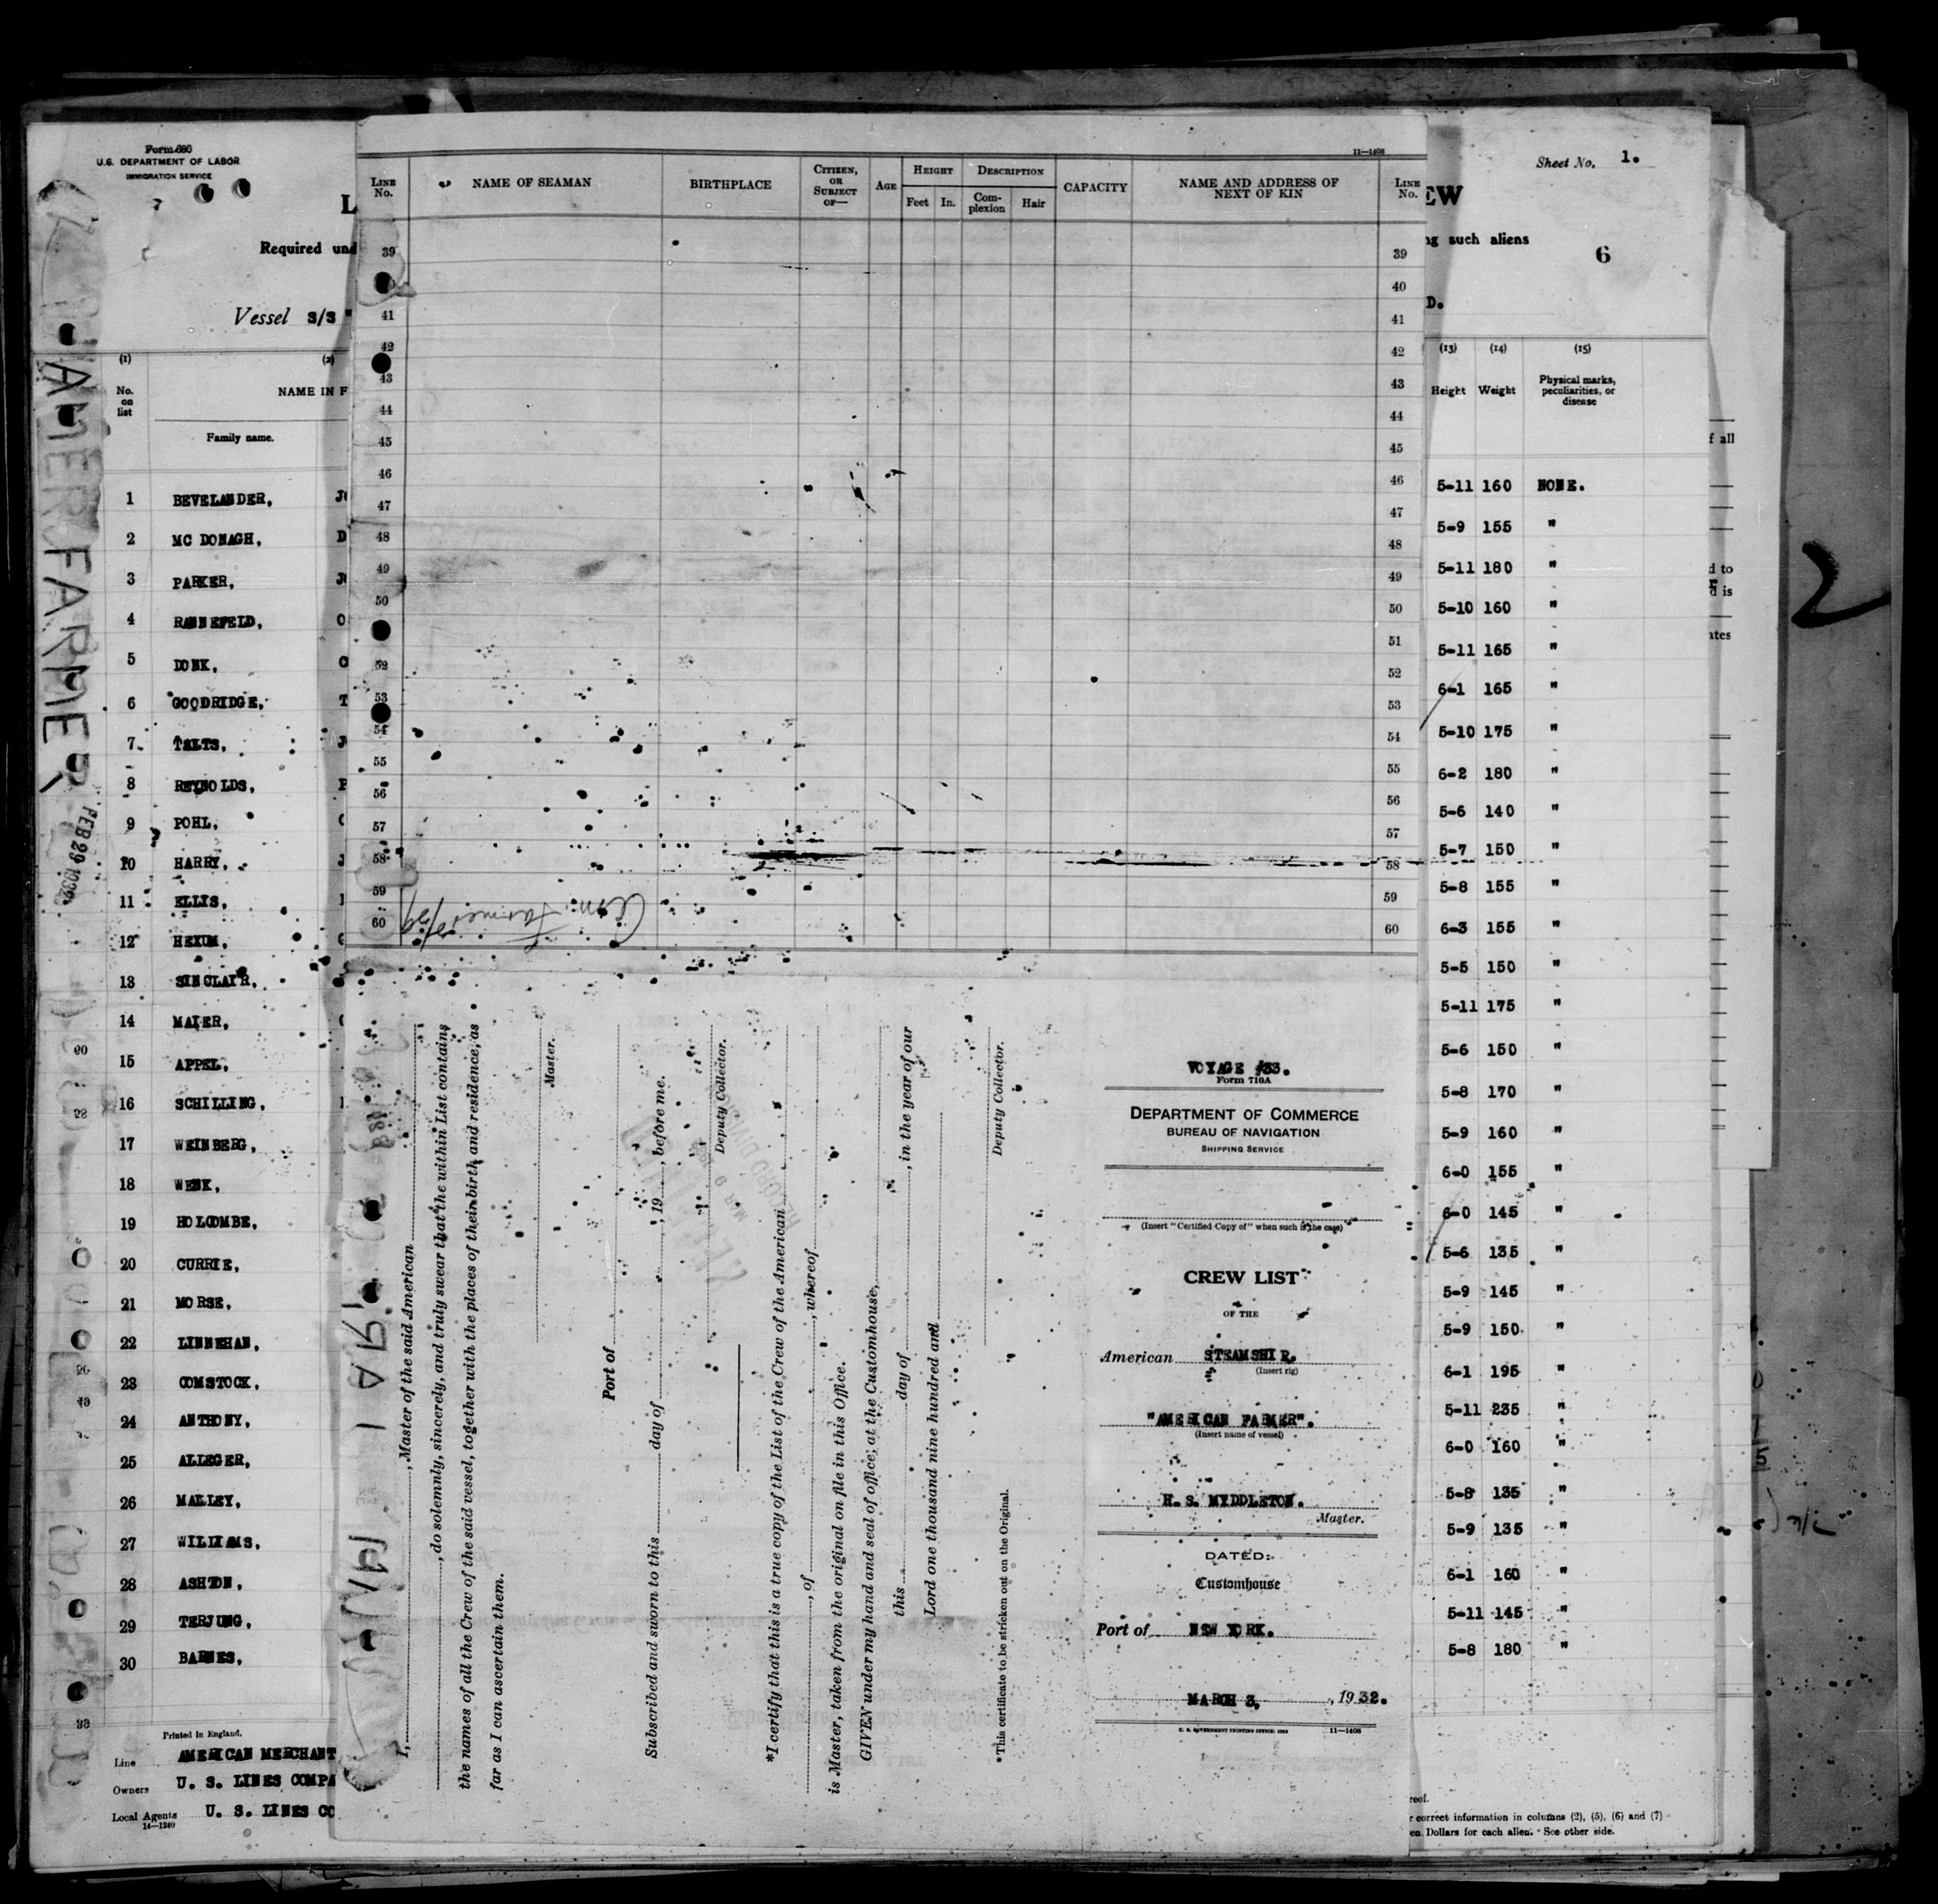 Form 680
U.S. DEPARTMENT OF LABOR
IMMIGRATION SERVICE
L
Required und
Vessel S/S "
(1) (2)
No. on list
NAME IN F
Family name.
1 BEVELANDER, J
2 MC DONAGH, D
3 PARKER, J
4 RANNEFELD, O
5 DONK, C
6 GOODRIDGE, T
7 TALTS, J
8 REYNOLDS,
9 POHL,
10 HARRY, J
11 ELLIS,
12 HEXUM,
13 SINCLAIR,
14 MAIER,
15 APPEL,
16 SCHILLING,
17 WEINBERG,
18 WENK,
19 HOLCOMBE,
20 CURRIE,
21 MORSE,
22 LINNEHAN,
23 COMSTOCK,
24 ANTHONY,
25 ALLEGER,
26 MALLEY,
27 WILLIAMS,
28 ASHTON,
29 TERJUNG,
30 BARNES,
Printed in England.
Line AMERICAN MERCHANT
Owners U. S. LINES COMPA
Local Agents U. S. LINES CO
14—1240
AMER FARMER
FEB 29 1932
11—1408
LINE No. NAME OF SEAMAN BIRTHPLACE CITIZEN, OR SUBJECT OF— AGE HEIGHT Feet In. DESCRIPTION Complexion Hair CAPACITY NAME AND ADDRESS OF NEXT OF KIN LINE No.
39 39
40
41 41
42 42
43 43
44 44
45 45
46 46
47 47
48 48
49 49
50 50
51
52 52
53 53
54 54
55 55
56 56
57 57
58 58
59 59
60 Am. Farmer 60
I, , Master of the said American
, do solemnly, sincerely, and truly swear that the within List contains
the names of all the Crew of the said vessel, together with the places of their birth and residence, as
far as I can ascertain them.
Master.
Port of
Subscribed and sworn to this day of , 19 , before me.
Deputy Collector.
RECORD DIVISION
*I certify that this is a true copy of the List of the Crew of the American
, of , whereof
is Master, taken from the original on file in this Office.
GIVEN under my hand and seal of office, at the Customhouse,
this day of , in the year of our
Lord one thousand nine hundred and
Deputy Collector.
*This certificate to be stricken out on the Original.
VOYAGE #33.
Form 710A
DEPARTMENT OF COMMERCE
BUREAU OF NAVIGATION
SHIPPING SERVICE
(Insert "Certified Copy of" when such is the case)
CREW LIST
OF THE
American STEAMSHIP.
(Insert rig)
"AMERICAN FARMER".
(Insert name of vessel)
H. S. MYDDLETON.
Master.
DATED:
Customhouse
Port of NEW YORK.
MARCH 3, , 1932.
U. S. GOVERNMENT PRINTING OFFICE: 11—1408
Sheet No. 1.
EW
ng such aliens
6
D.
(13) (14) (15)
Height Weight Physical marks, peculiarities, or disease
5-11 160 NONE.
5-9 155 "
5-11 180 "
5-10 160 "
5-11 165 "
6-1 165 "
5-10 175 "
6-2 180 "
5-6 140 "
5-7 150 "
5-8 155 "
6-3 155 "
5-5 150 "
5-11 175 "
5-6 150 "
5-8 170 "
5-9 160 "
6-0 155 "
6-0 145 "
5-6 135 "
5-9 145 "
5-9 150 "
6-1 195 "
5-11 235 "
6-0 160 "
5-8 135 "
5-9 135 "
6-1 160 "
5-11 145 "
5-8 180 "
reof.
r correct information in columns (2), (5), (6) and (7)
en Dollars for each alien. See other side.
f all
d to
d is
ates
2